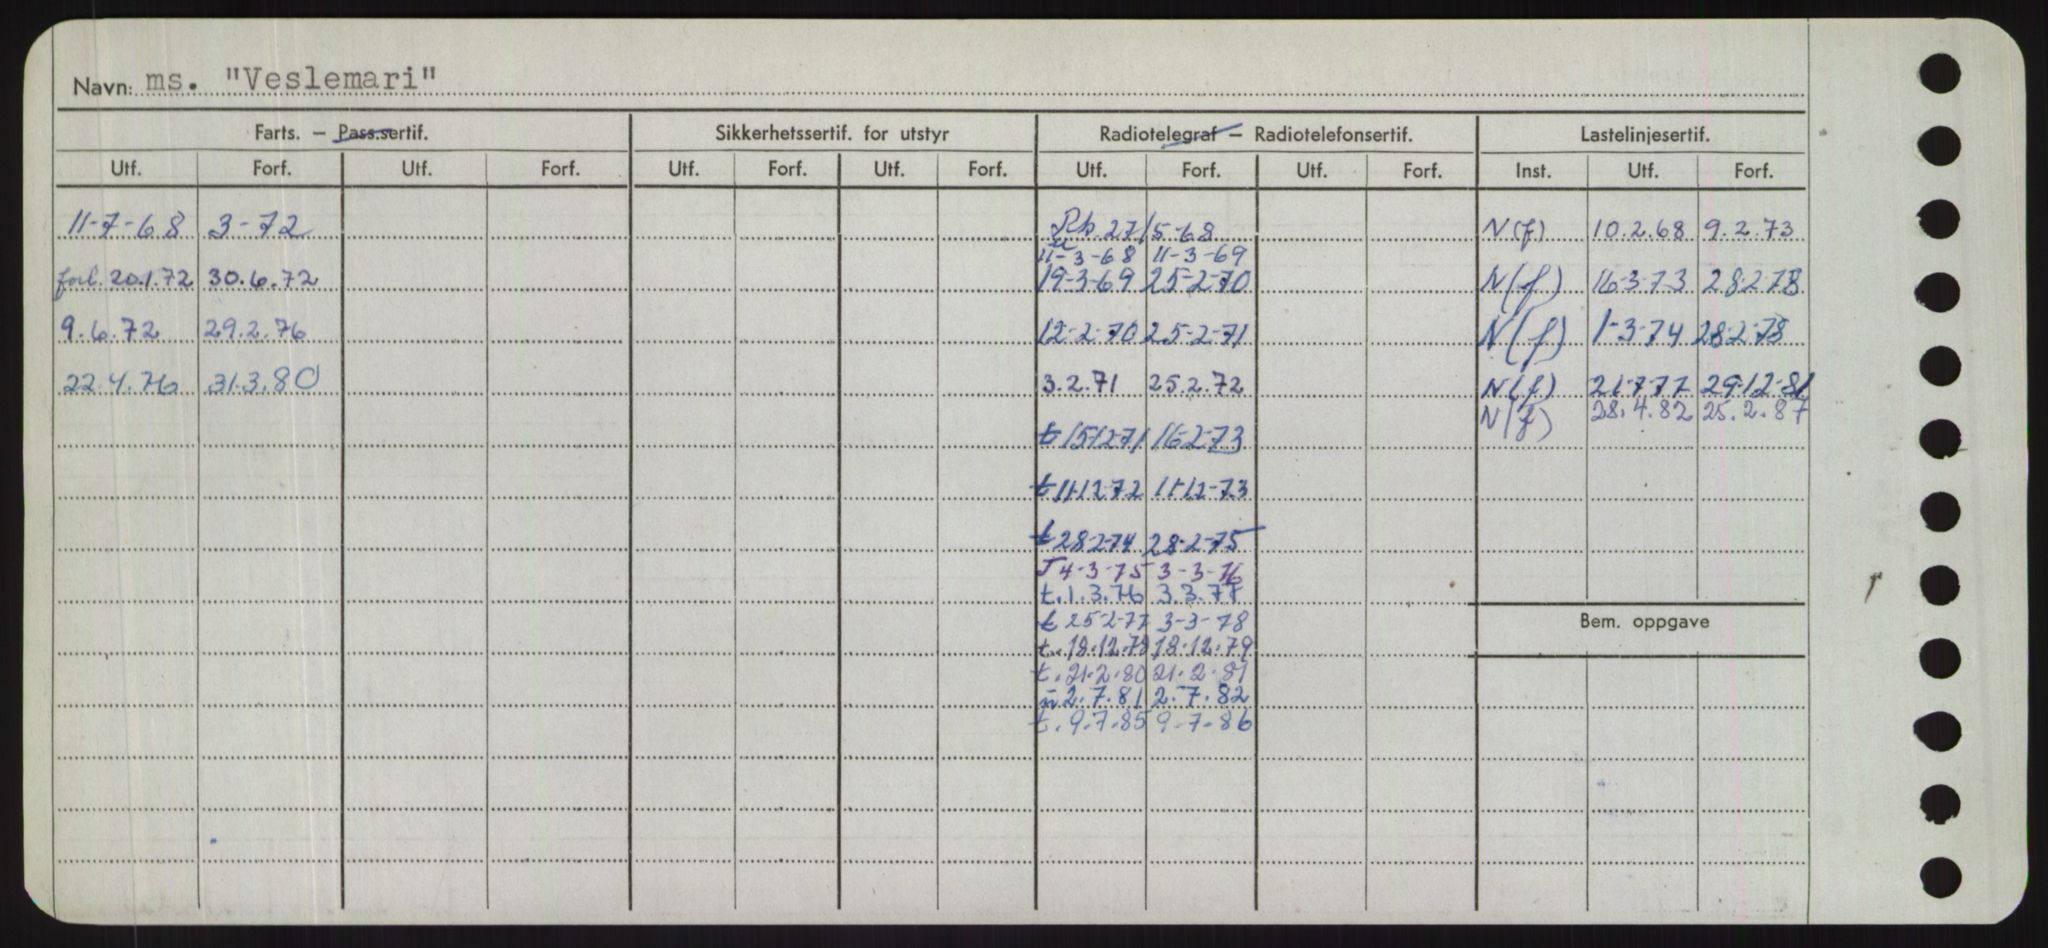 Navn: ms. "Veslemari"
Farts. – Pass.sertif. Sikkerhetssertif. for utstyr Radiotelegraf – Radiotelefonsertif. Lastelinjesertif.
Utf. Forf. Utf. Forf. Utf. Forf. Utf. Forf. Utf. Forf. Utf. Forf. Inst. Utf. Forf.
11-7-68 3-72 Rb. 27/5-68 N(f) 10.2.68 9.2.73
11-3-68 11-3-69
forl. 20.1.72 30.6.72 19-3-69 25-2-70 N(f) 16-3-73 28-2-78
9.6.72 29.2.76 12-2-70 25-2-71 N(f) 1-3-74 28-2-78
22.4.76 31.3.80 3.2.71 25.2.72 N(f) 21-7-77 29-12-81
N(f) 28.4.82 25.2.87
t 15-12-71 16-2-73
t 11-12-72 11-12-73
t 28-2-74 28-2-75
T 4-3-75 3-3-76
t. 1.3.76 3.3.77
t 25-2-77 3-3-78
Bem. oppgave
t. 18.12.78 18.12.79
t. 21.2.80 21.2.81
2.7.81 2.7.82
t. 9.7.85 9-7-86